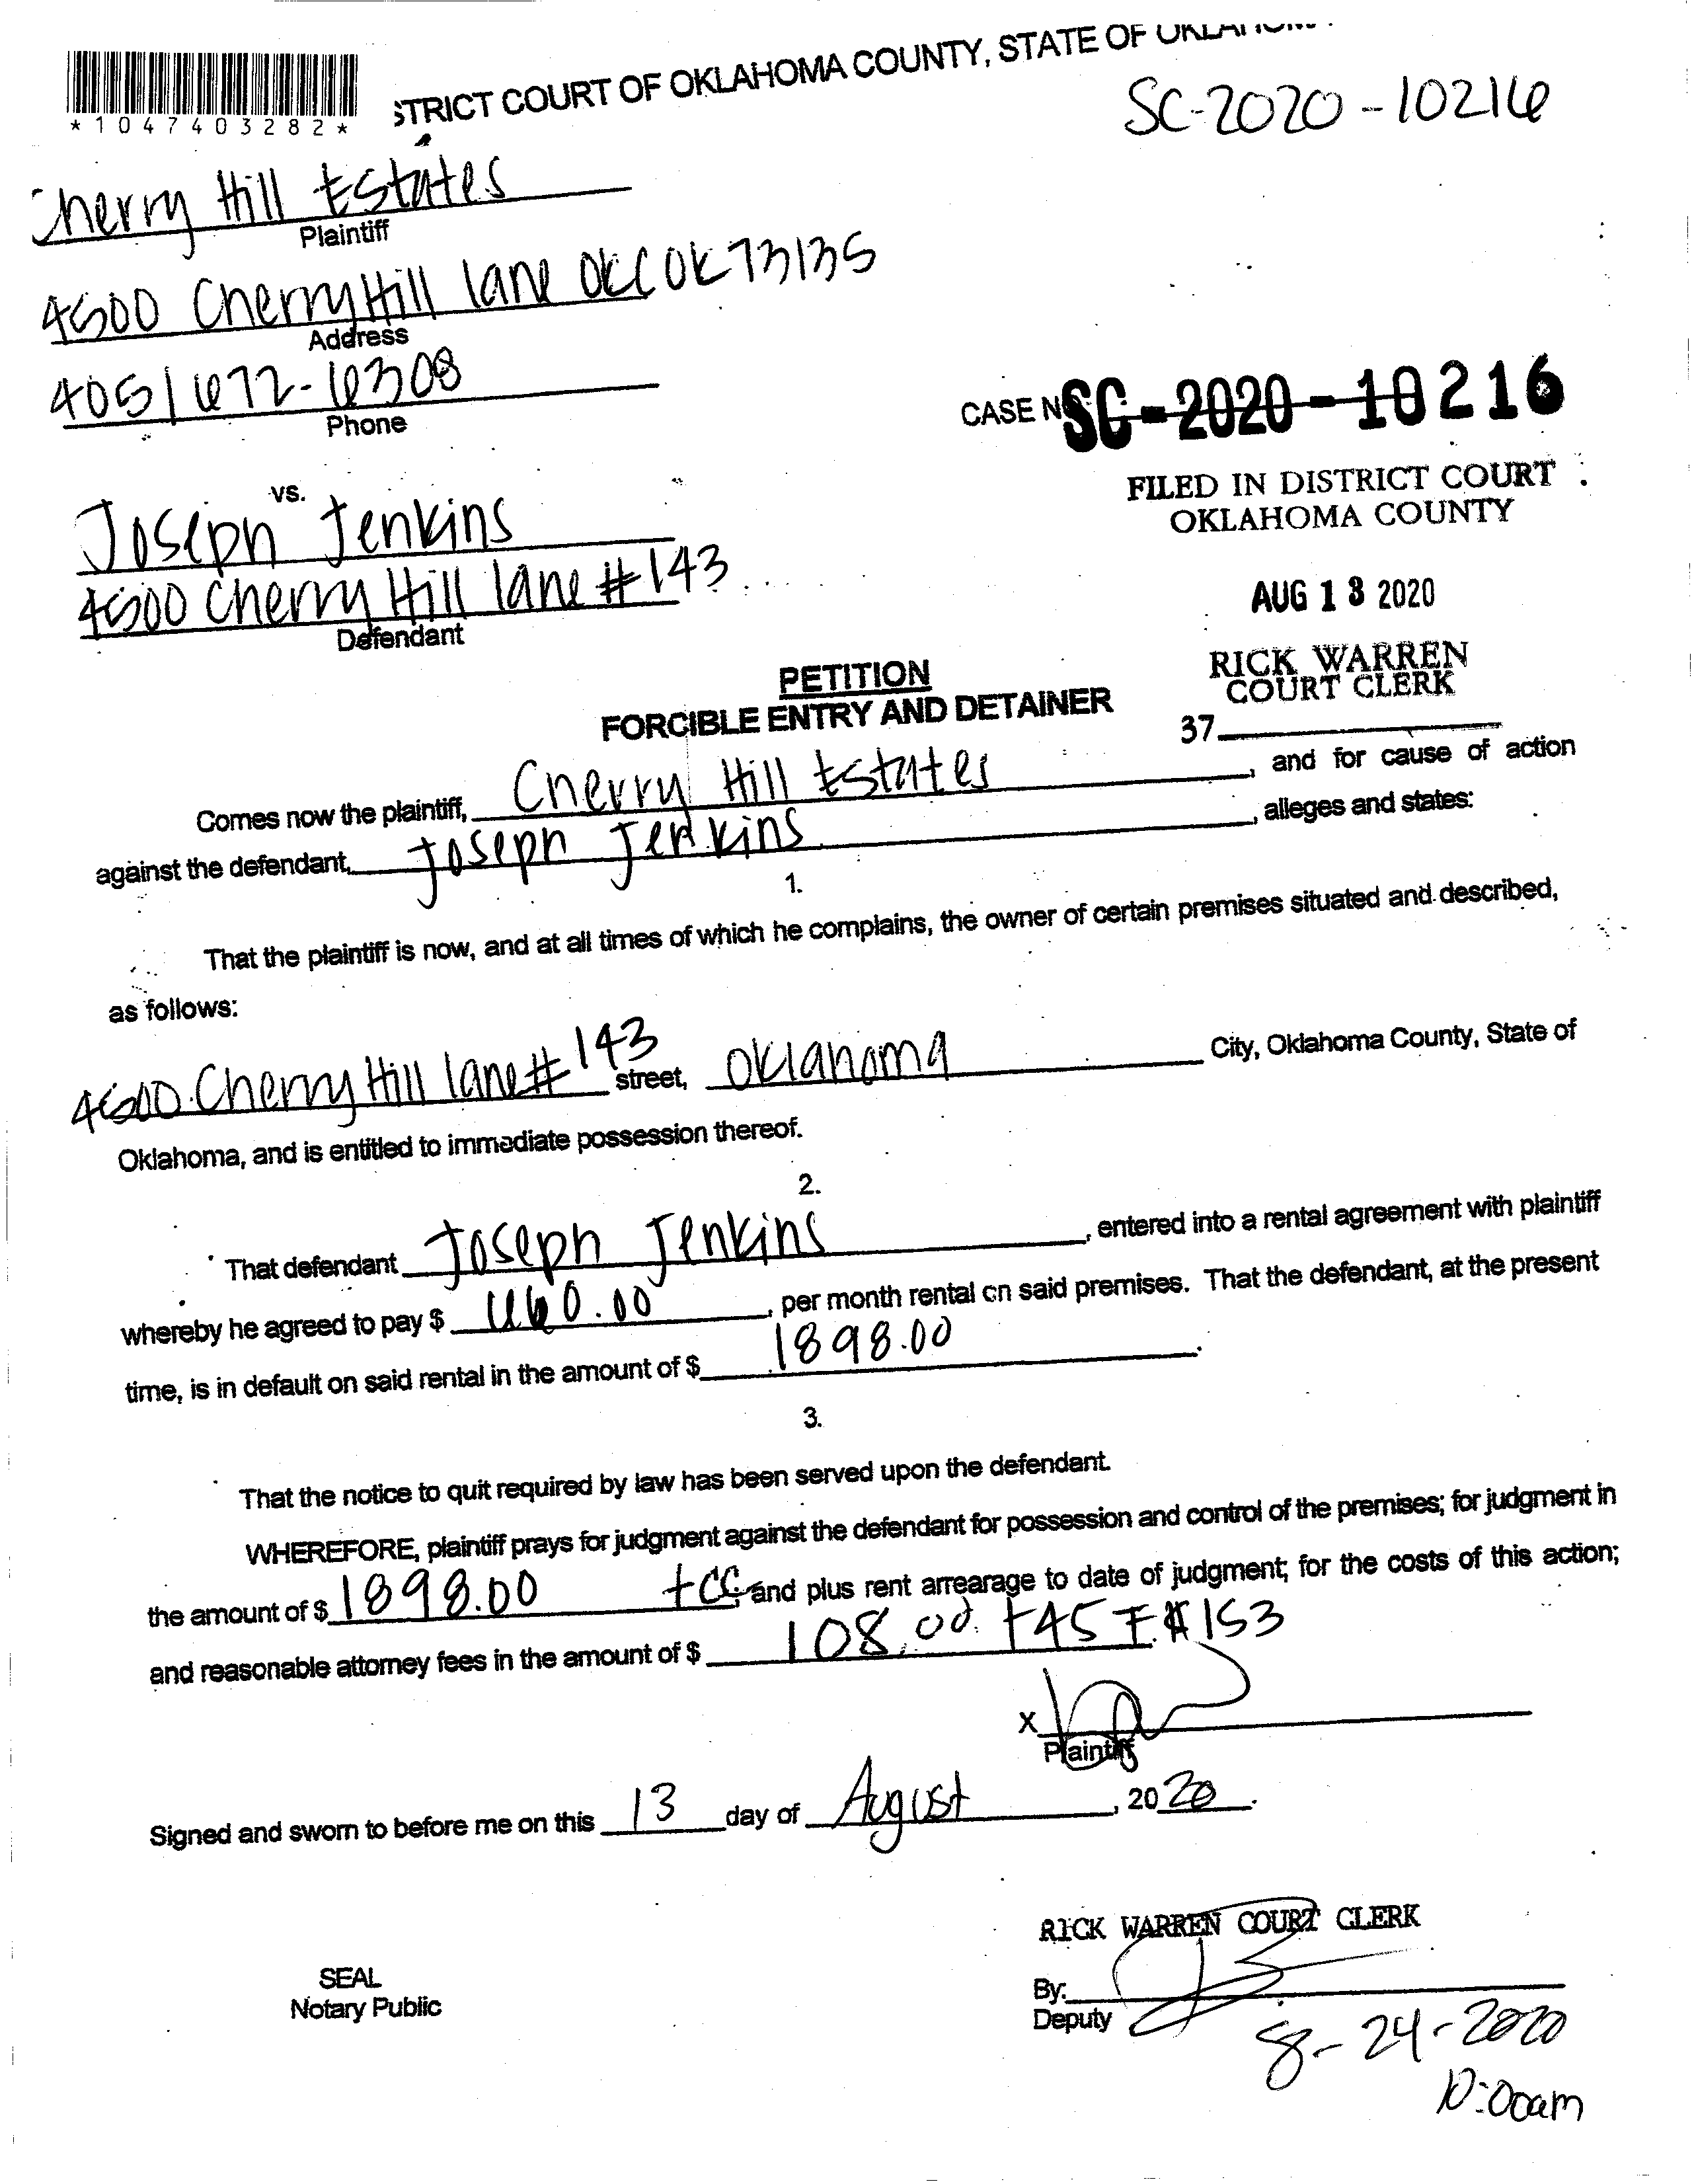 *1047403282*
STRICT COURT OF OKLAHOMA COUNTY, STATE OF OKLAHOMA
SC-2020-10216
Cherry Hill Estates
Plaintiff
4500 Cherry Hill lane OKC OK 73135
Address
405/672-6308
Phone
CASE NO. SC-2020-10216
FILED IN DISTRICT COURT
OKLAHOMA COUNTY
vs.
Joseph Jenkins
4500 Cherry Hill lane #143
Defendant
AUG 13 2020
RICK WARREN
COURT CLERK
37
PETITION
FORCIBLE ENTRY AND DETAINER
Comes now the plaintiff, Cherry Hill Estates, and for cause of action
against the defendant, Joseph Jenkins, alleges and states:
1.
That the plaintiff is now, and at all times of which he complains, the owner of certain premises situated and described,
as follows:
4500 Cherry Hill lane #143 street, Oklahoma City, Oklahoma County, State of
Oklahoma, and is entitled to immediate possession thereof.
2.
That defendant Joseph Jenkins, entered into a rental agreement with plaintiff
whereby he agreed to pay $ 660.00, per month rental on said premises. That the defendant, at the present
time, is in default on said rental in the amount of $ 1898.00.
3.
That the notice to quit required by law has been served upon the defendant.
WHEREFORE, plaintiff prays for judgment against the defendant for possession and control of the premises; for judgment in
the amount of $ 1898.00 +CC, and plus rent arrearage to date of judgment; for the costs of this action;
and reasonable attorney fees in the amount of $ 108.00 +45 153
X
Plaintiff
Signed and sworn to before me on this 13 day of August, 2020.
RICK WARREN COURT CLERK
SEAL
Notary Public
By:
Deputy
8-24-2020
10:00am